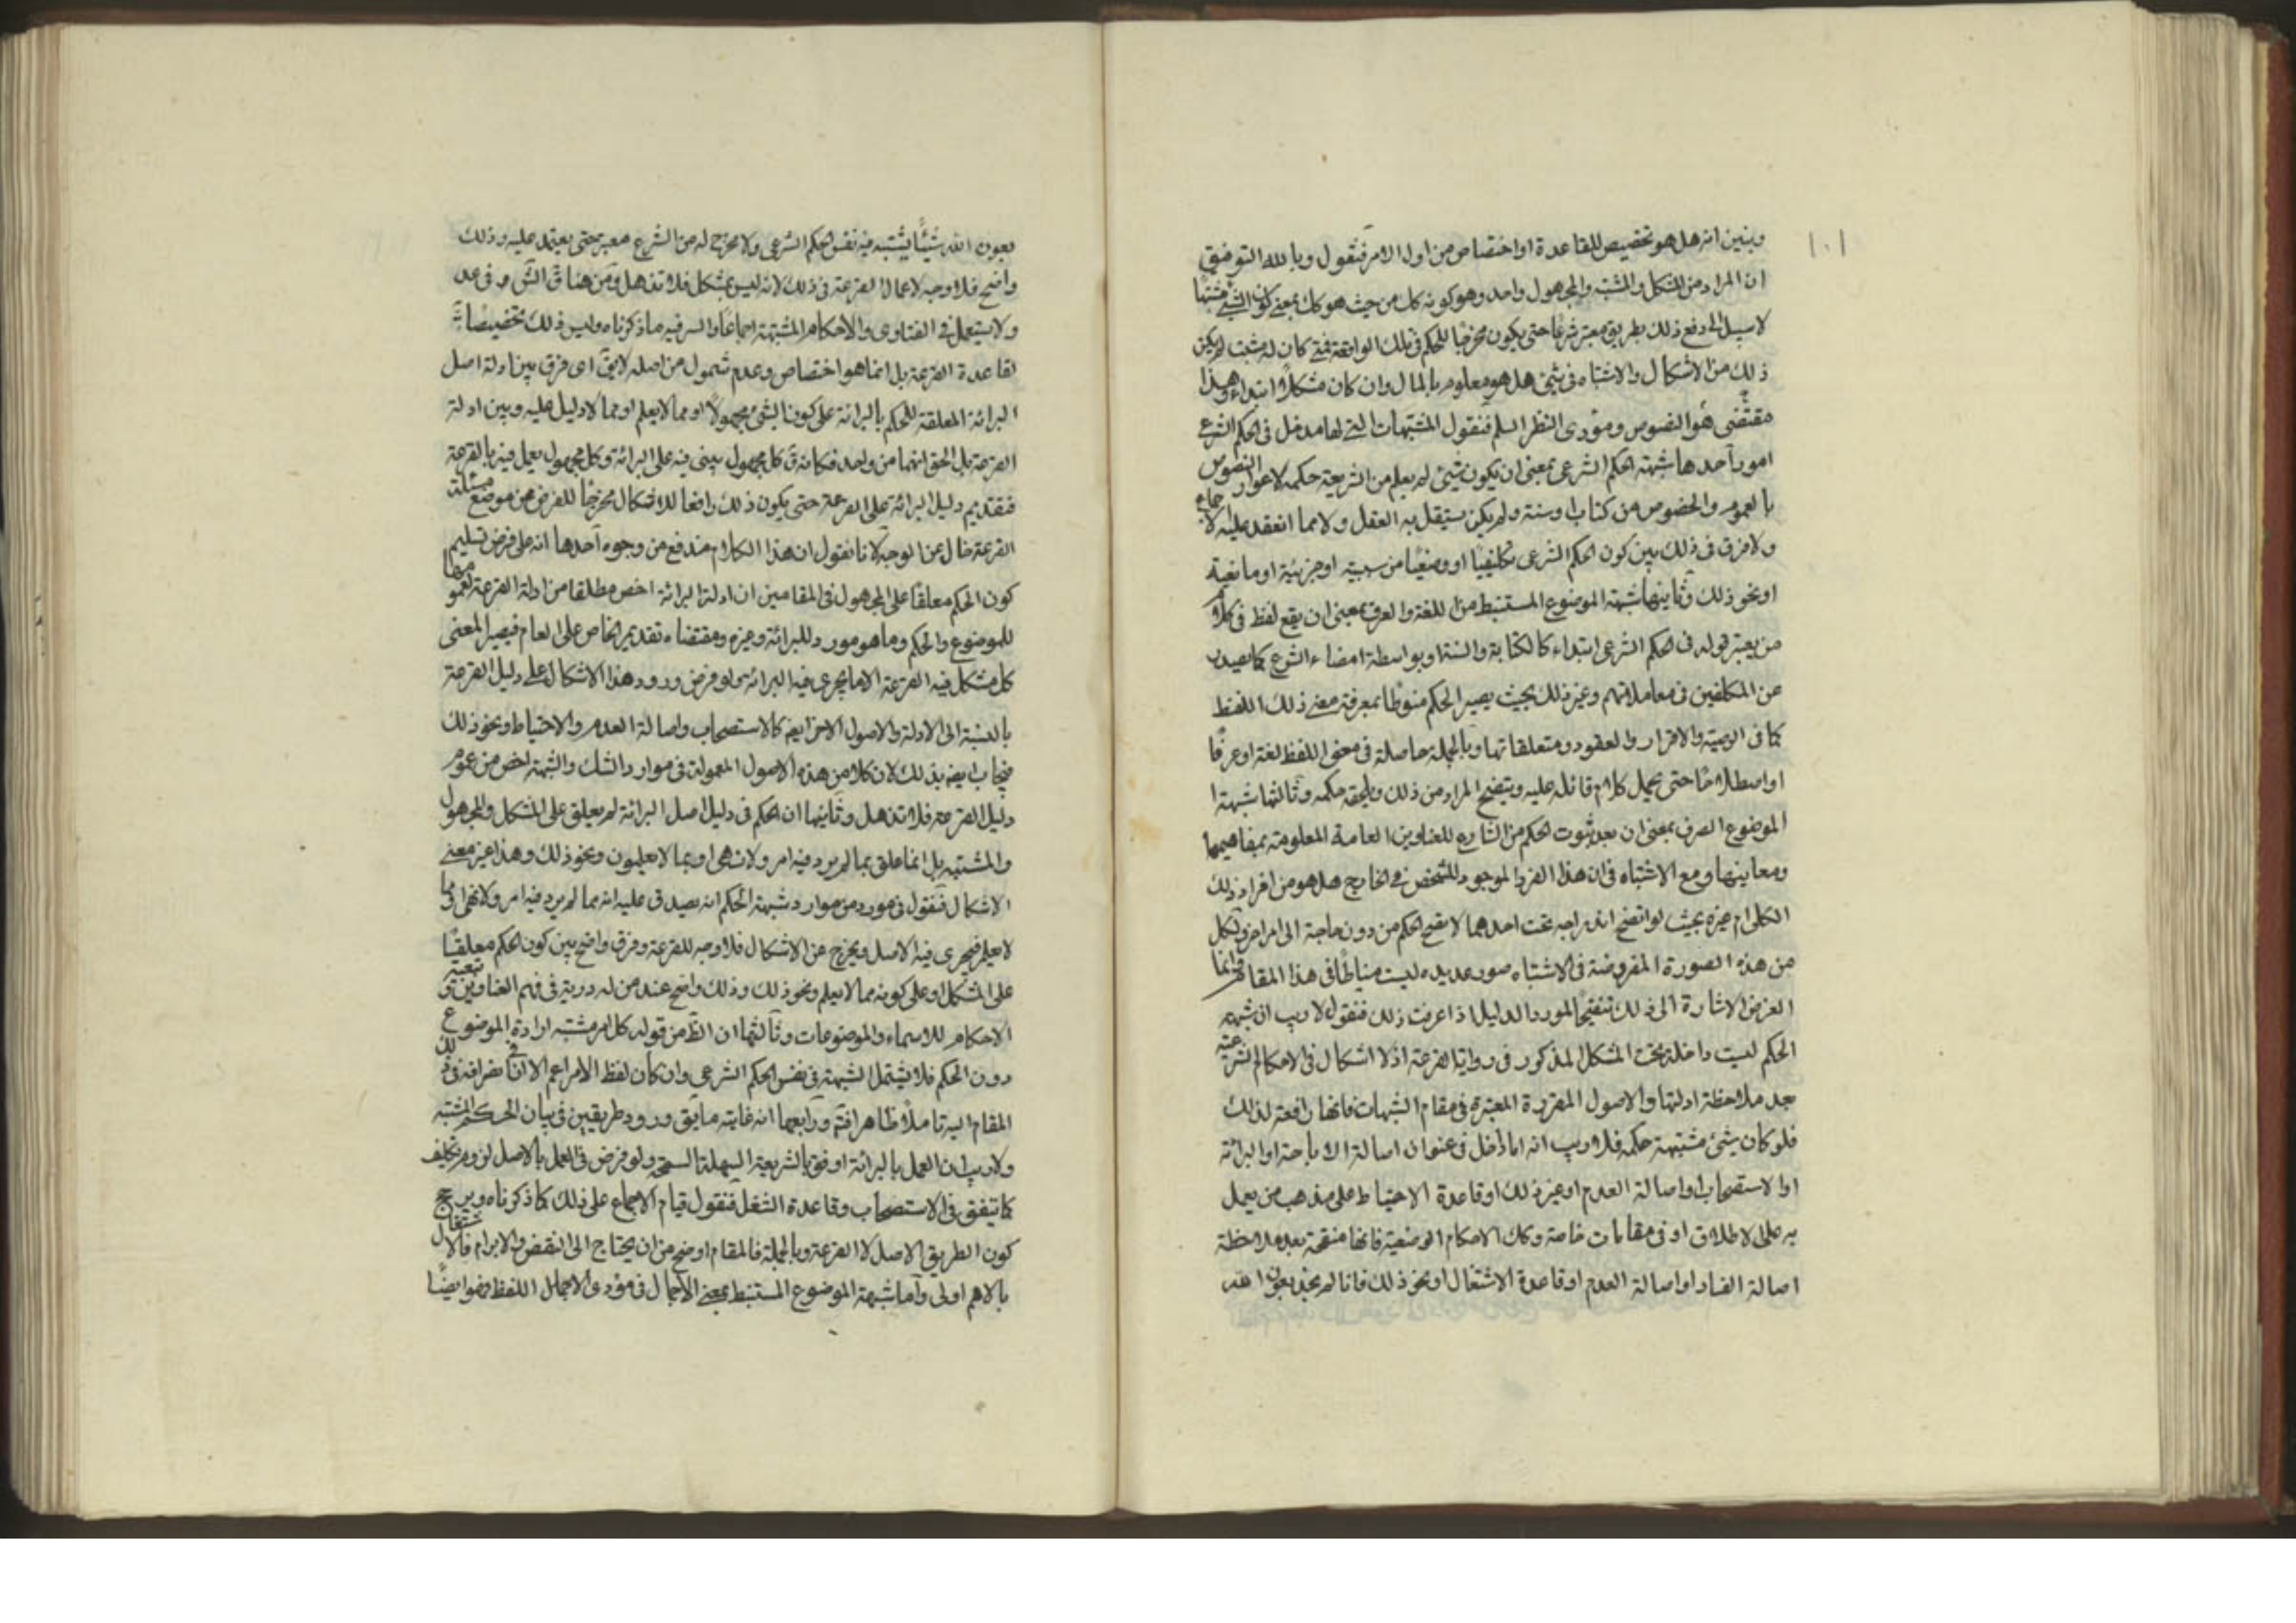 ١٠١
ونبين انه هل هو تخصيص للقاعدة او اختصاص من اول الامر فنقول وبالله التوفيق
ان المراد من المشكل والمشتبه والمجهول واحد وهو كونه كل من حيث هو كك بمعنى كون الشئ مشتبها
لا سبيل الى دفع ذلك بطريق معتبر شرعا حتى يكون مخرجا للحكم فى تلك الواقعة فمتى كان له مثبت لم يكن
ذلك من الاشكال والاشتباه فى شئ هل هو معلوم بالمال وان كان مشكلا ابتداء وهذا
مقتضى النصوص ومؤدى النظر السلم فنقول المشتبهات التى لها مدخل فى الحكم الشرعى
امور احدها شبهة الحكم الشرعى بمعنى ان يكون شئ لم يعلم من الشريعة حكمه لاعواز النصوص
بالعموم والخصوص من كتاب او سنة ولم يكن يستقل به العقل ولا مما انعقد عليه الاجماع
ولا فرق فى ذلك بين كون الحكم الشرعى تكليفيا او وضعيا من سببية او جزئية او مانعية
او نحو ذلك وثانيها شبهة الموضوع المستنبط من اللغة والعرف بمعنى ان يقع لفظ فى كلام
من يعتبر قوله فى الحكم الشرعى ابتداء كالكتابة والسنة او بواسطة امضاء الشرع كما يصدر
من المكلفين فى معاملاتهم وغير ذلك بحيث يصير الحكم منوطا بمعرفة معنى ذلك اللفظ
كما فى الوصية والاقرار والعقود ومتعلقاتها وبالجملة حاصلة فى معنى اللفظ لغة او عرفا
او اصطلاحا حتى يحمل كلام قائله عليه ويتضح المراد من ذلك ويلحقه حكمه وثالثها شبهة
الموضوع الصرف بمعنى ان بعد ثبوت الحكم من الشارع للعناوين العامة المعلومة بمفاهيمها
ومعانيها وقع الاشتباه فى ان هذا الفرد الموجود المشخص فى الخارج هل هو من افراد ذلك
الكلى ام غيره بحيث لو اتضح اندراجه تحت احدهما لاتضح الحكم من دون حاجة الى امر اخر ولكل
من هذه الصورة المفروضة فى الاشتباه صور عديده ليست مناطا فى هذا المقام وانما
الغرض الاشارة الى ذلك تنقيحا لمورد الدليل اذا عرفت ذلك فنقول لا ريب ان شبهة
الحكم ليست داخلة تحت المشكل المذكور فى روايات القرعة اذ لا اشكال فى الاحكام الشرعية
بعد ملاحظة ادلتها والاصول المقررة المعتبرة فى مقام الشبهات فانها رافعة لذلك
فلو كان شئ مشتبهة حكمه فلا ريب انه اما داخل فى عنوان اصالة الاباحة او البرائة
او الاستصحاب او اصالة العدم او غير ذلك او قاعدة الاحتياط على مذهب من يعمل
به على الاطلاق او فى مقامات خاصة وكك الاحكام الوضعية فانها منقحة بعد ملاحظة
اصالة الفساد او اصالة العدم او قاعدة الاشتغال او نحو ذلك فانا لم نجد بعون الله
بعون الله شيئا يشتبه فيه نفس الحكم الشرعى ولا مخرج له من الشرع معتبر حتى يعتمد عليه وذلك
واضح فلا وجه لاعمال القرعة فى ذلك لانه ليس بمشكل فلا تذهل ومن هنا ق الش ره فى عد
ولا يستعمل فى الفتاوى والاحكام المشتبهة اجماعا والسر فيه ما ذكرناه وليس ذلك تخصيصا
لقاعدة القرعة بل انما هو اختصاص وعدم شمول من اصله لا يق اى فرق بين ادلة اصل
البرائة المعلقة للحكم بالبرائة على كون الشئ مجهولا او مما لا يعلم او مما لا دليل عليه وبين ادلة
القرعة بل الحق انهما من واحد فكانه ق كل مجهول يبنى فيه على البرائة وكل مجهول يعمل فيه بالقرعة
فتقديم دليل البرائة على القرعة حتى يكون ذلك رافعا للاشكال مخرجا للفرض عن موضع مسئلة
القرعة خال عن الوجه لانا نقول ان هذا الكلام مندفع من وجوه احدها انه على فرض تسليم
كون الحكم معلقا على المجهول فى المقامين ان ادلة البرائة اخص مطلقا من ادلة القرعة لعمومها
للموضوع والحكم وما هو مورد للبرائة وغيره ومقتضاه تقديم الخاص على العام فيصير المعنى
كل مشكل فيه القرعة الا ما يجرى فيه البرائة ولو فرض ورود هذا الاشكال على دليل القرعة
بالنسبة الى الادلة والاصول الاخر ايضه كالاستصحاب واصالة العدم والاحتياط ونحو ذلك
فيجاب ايضه بذلك لان كلا من هذه الاصول المعمولة فى موارد الشك والشبهة اخص من عموم
دليل القرعة فلا تذهل وثانيها ان الحكم فى دليل اصل البرائة لم يعلق على المشكل والمجهول
والمشتبه بل انما علق بما لم يرد فيه امر ولا نهى او بما لا يعلمون ونحو ذلك وهذا غير معنى
الاشكال فنقول فى مورد من موارد شبهة الحكم انه يصدق عليه انه مما لم يرد فيه امر ولا نهى او مما
لا يعلم فيجرى فيه الاصل ويخرج عن الاشكال فلا وجه للقرعة وفرق واضح بين كون الحكم معلقا
على المشكل او على كونه مما لا يعلم ونحو ذلك وذلك واضح عند من له دربة فى فهم العناوين وتبعية
الاحكام للاسماء والموضوعات وثالثها ان الظ من قوله كل امر مشتبه ارادة الموضوع
دون الحكم فلا يشتمل الشبهة فى نفس الحكم الشرعى وان كان لفظ الامر اعم الا ان انصرافه فى
المقام اليه تاملا ظاهرا فتم ورابعها انه غايته ما يق ورود طريقين فى بيان الحكم المشتبه
ولا ريب ان العمل بالبرائة اوفق بالشريعة السهلة السمحة ولو فرض فى العمل بالاصل لزوم تكليف
كما يتفق فى الاستصحاب وقاعدة الشغل فنقول قيام الاجماع على ذلك كما ذكرناه ويرجح
كون الطريق الاصل لا القرعة وبالجملة فالمقام اوضح من ان يحتاج الى النقض والابرام فالاشتغال
بالاهم اولى واما شبهة الموضوع المستنبط بمعنى الاجمال فى مؤدى الاجمال اللفظ فهو ايضا